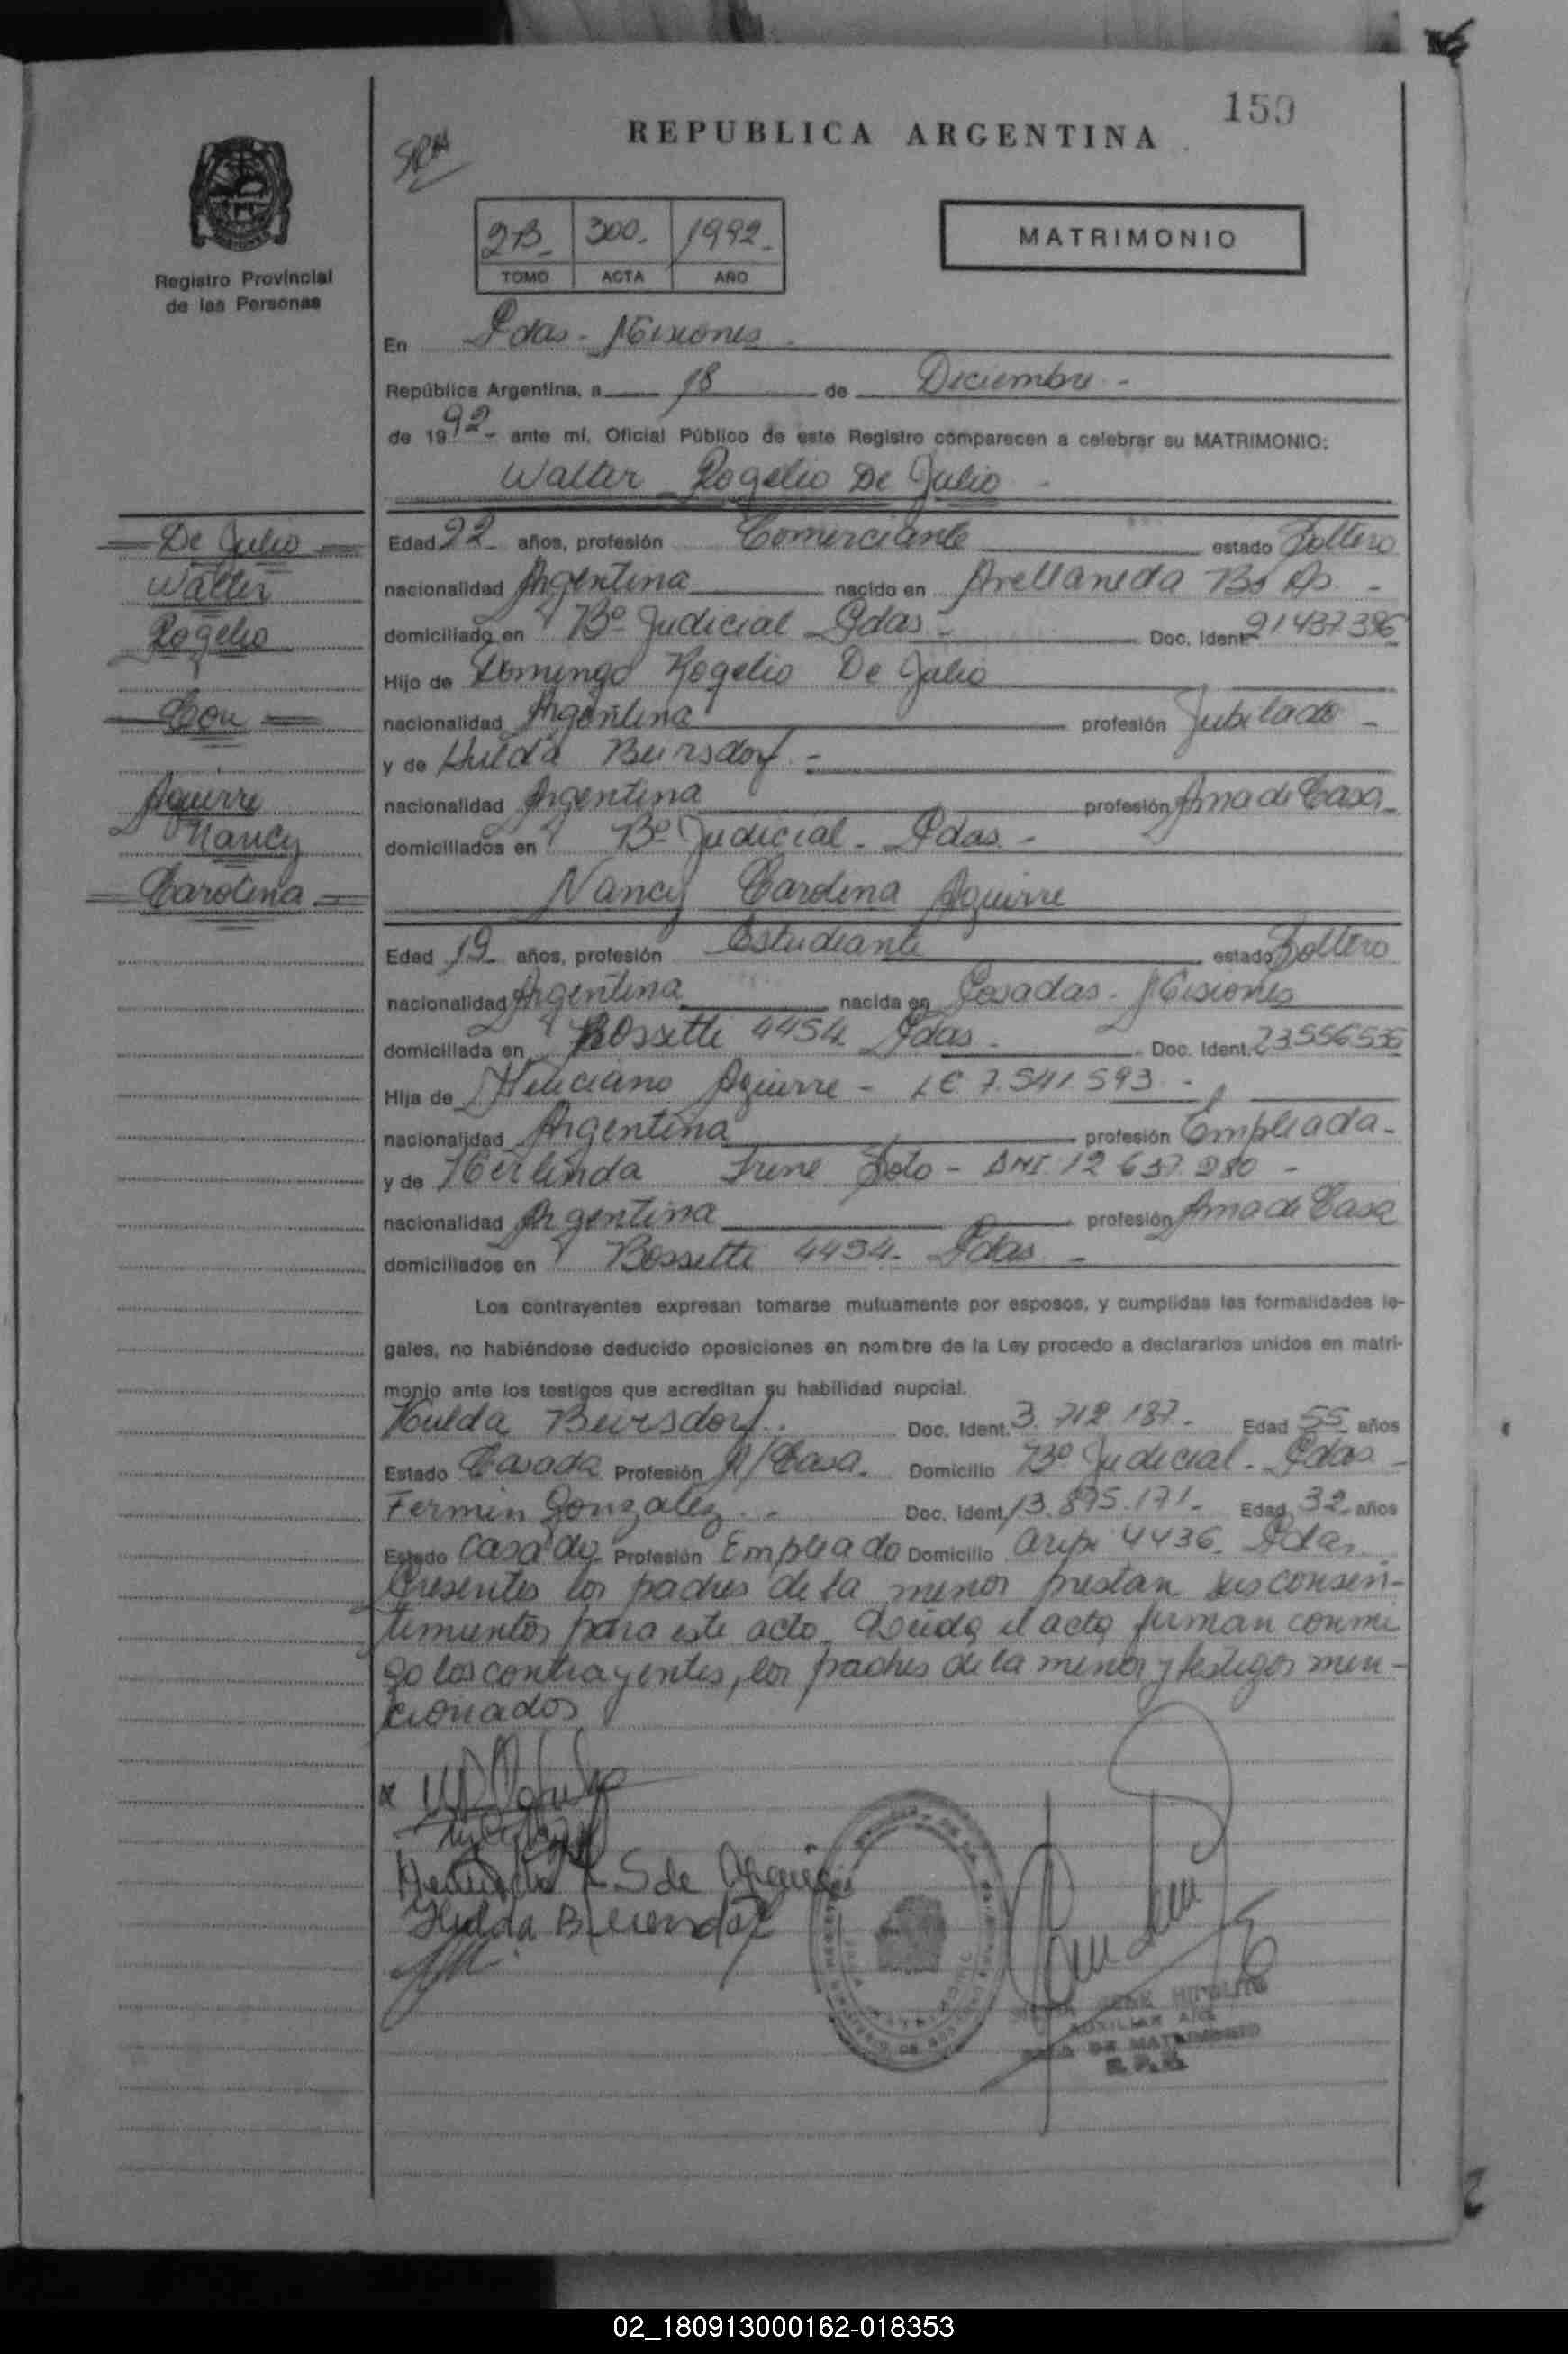 159
REPUBLICA ARGENTINA
Registro Provincial
de las Personas
2B_ 300. 1992.
TOMO ACTA AÑO
MATRIMONIO
En Pdas - Misiones
República Argentina, a 18 de Diciembre -
de 1992- ante mí, Oficial Público de este Registro comparecen a celebrar su MATRIMONIO:
Walter Rogelio De Julio -
De Julio
Walter
Rogelio
Con
Aguirre
Nancy
Carolina
Edad 22 años, profesión Comerciante estado Soltero
nacionalidad Argentina nacido en Avellaneda Bs As. -
domiciliado en Bº Judicial Pdas - Doc. Ident. 21437396
Hijo de Domingo Rogelio De Julio
nacionalidad Argentina profesión Jubilado -
y de Hulda Beirsdorf -
nacionalidad Argentina profesión Ama de Casa
domiciliados en Bº Judicial - Pdas. -
Nancy Carolina Aguirre
Edad 19 años, profesión Estudiante estado Soltero
nacionalidad Argentina nacida en Posadas - Misiones
domiciliada en Bossetti 4454 Pdas - Doc. Ident. 23556535
Hija de Feliciano Aguirre - LE 7.541.593 -
nacionalidad Argentina profesión Empleada -
y de Herlinda Irene Soto - DNI 12 637 280 -
nacionalidad Argentina profesión Ama de Casa
domiciliados en Bossetti 4454. Pdas -
Los contrayentes expresan tomarse mutuamente por esposos, y cumplidas las formalidades le-
gales, no habiéndose deducido oposiciones en nombre de la Ley procedo a declararlos unidos en matri-
monio ante los testigos que acreditan su habilidad nupcial.
Hulda Beirsdorf. Doc. Ident. 3.712.187. Edad 55 años
Estado Casada Profesión A/Casa. Domicilio Bº Judicial - Pdas -
Fermin Gonzalez - Doc. Ident. 13.895.171- Edad 32 años
Estado Casado Profesión Empleado Domicilio 4436. Pdas.
Presentes los padres de la menor prestan sus consen-
timientos para este acto. Leida el acta firman conmi
go los contrayentes, los padres de la menor y testigos men-
cionados
S de Aguirre
Hulda
JOSE HIPOLITO
AUXILIAR
DE MATRIMONIO
02_180913000162-018353